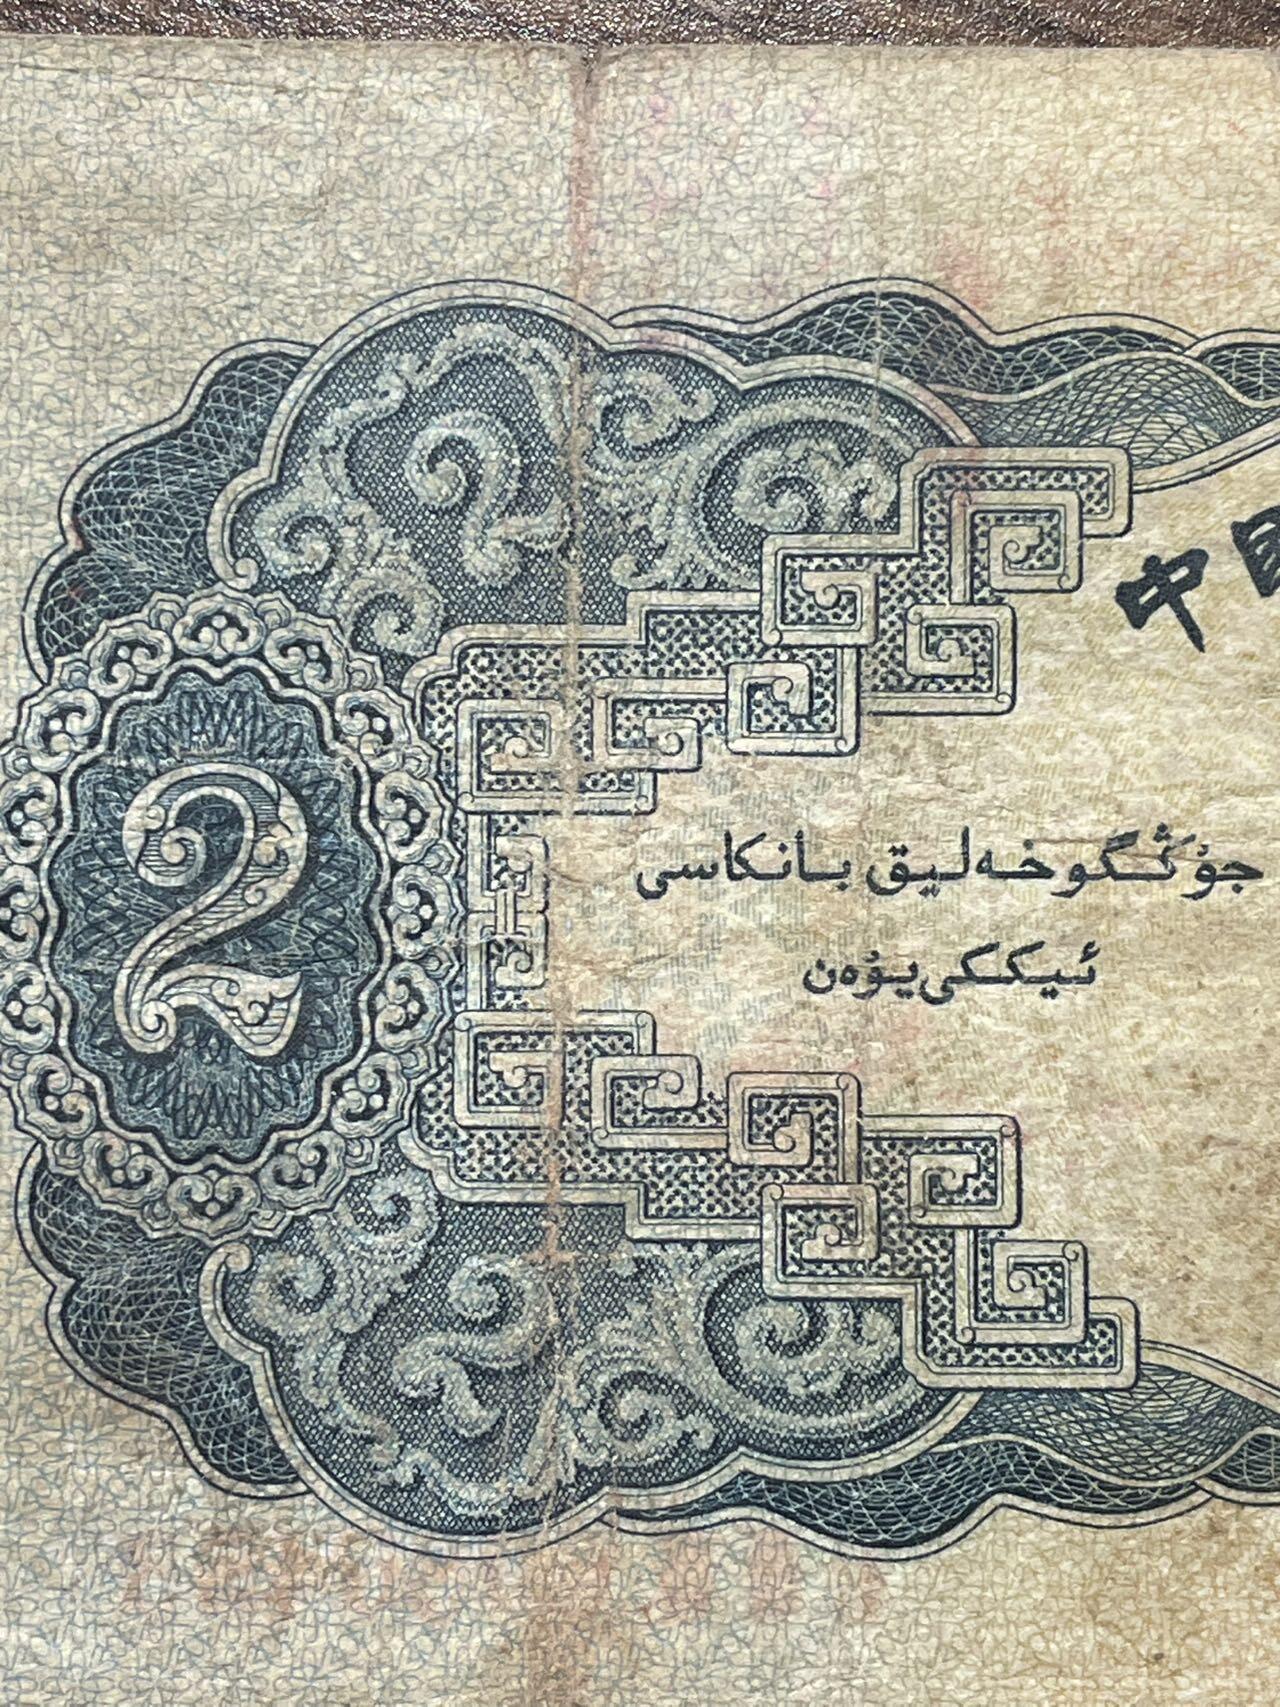 中
جۇڭگو خەلىق بانكاسى
ئىككى يۈەن
2